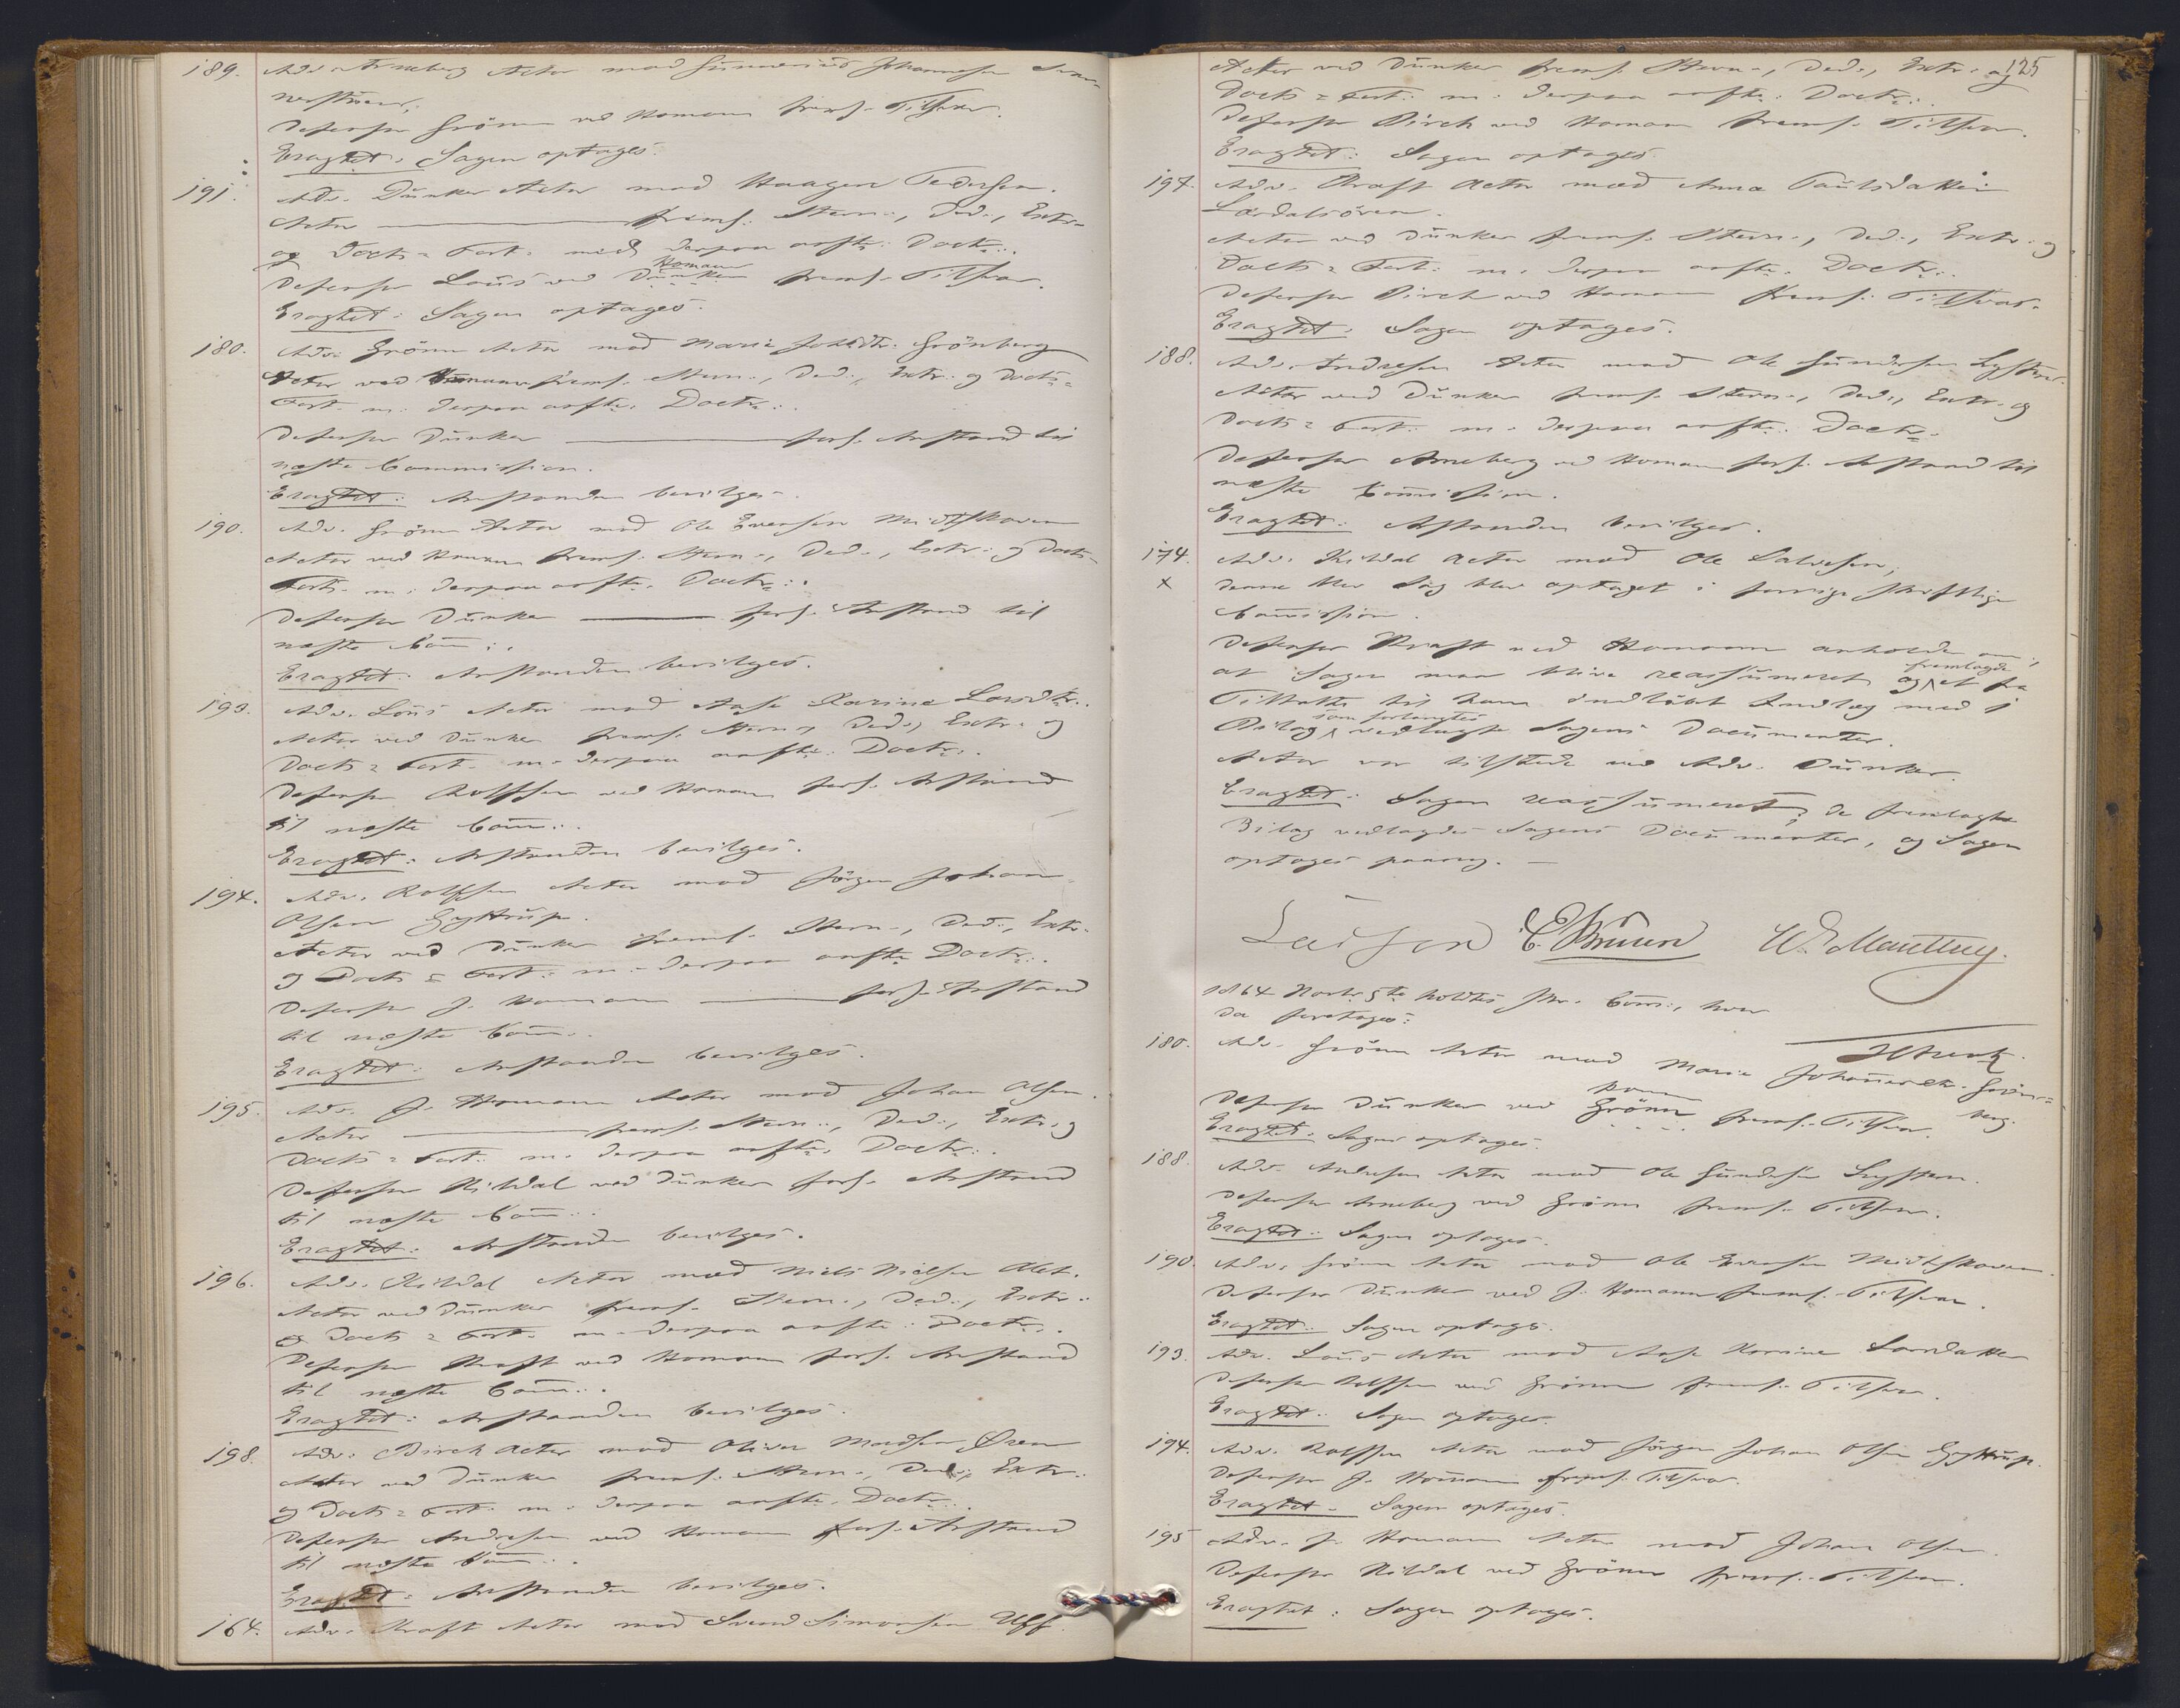 189. Adv. Arneberg Actor mod Gunnerius Johannesen
Defensor Grönn ved Homann frems. Tilsvar.
Eragtet: Sagen optages.
191. Adv. Dunker Actor mod Haagen Pedersen.
Actor ——— frems. Stevn., Ded., Extr.
og Docts = Fort. med derpaa Doctr.
Homann
Defensor Lous ved Dunker frems. Tilsvar.
Eragtet: Sagen optages.
180. Adv. Grönn Actor mod Maria Grönberg
Actor ved Homann frems. Stevn., Ded., Extr. og Docts =
Fort. m. derpaa Doctr.
Defensor Dunker ——— fors. Anstand til
næste Commission.
Eragtet: Anstanden bevilges.
190. Adv. Grönn Actor mod Ole Evensen Midtskoven
Actor ved Homann frems. Stevn., Ded., Extr. og Docts =
Fort. m. derpaa Doctr.
Defensor Dunker ——— fors. Anstand til
næste Com.
Eragtet: Anstanden bevilges.
193. Adv. Lous Actor mod Aase Karine Larsdtr.
Actor ved Dunker frems. Stevn., Ded., Extr. og
Docts = Fort. m. derpaa Doctr.
Defensor Rolfsen ved Homann fors. Anstand
til næste Com.
Eragtet: Anstanden bevilges.
194. Adv. Rolfsen Actor mod Jörgen Johan
Olsen Gyttrup.
Actor ved Dunker frems. Stevn., Ded., Extr.
og Docts = Fort. m. derpaa Doctr.
Defensor J. Homann ——— fors. Anstand
til næste Com.
Eragtet: Anstanden bevilges.
195. Adv. J. Homann Actor mod Johan Olsen.
Actor ——— frems. Stevn., Ded., Extr. og
Docts = Fort. m. derpaa Doctr.
Defensor Kildal ved Dunker fors. Anstand
til næste Com.
Eragtet: Anstanden bevilges.
196. Adv. Kildal Actor mod Niels Nielsen
Actor ved Dunker frems. Stevn., Ded., Extr.
og Docts = Fort. m. derpaa Doctr.
Defensor Kraft ved Homann fors. Anstand
til næste Com.
Eragtet: Anstanden bevilges.
198. Adv. Birch Actor mod Oliver Madsen Øren
Actor ved Dunker frems. Stevn., Ded., Extr.
og Docts = Fort. m. derpaa Doctr.
Defensor Andresen ved Homann fors. Anstand
til næste Com.
Eragtet: Anstanden bevilges.
164. Adv. Kraft Actor mod Svend Simonsen Ulff.
125
Actor ved Dunker frems. Stevn., Ded., Extr. og
Docts = Fort. m. derpaa Doctr.
Defensor Birch ved Homann frems. Tilsvar.
Eragtet: Sagen optages.
197. Adv. Kraft Actor mod Anna Paulsdatter
Lærdalsören.
Actor ved Dunker frems. Stevn., Ded., Extr. og
Docts = Fort. m. derpaa Doctr.
Defensor Birch ved Homann frems. Tilsvar.
Eragtet: Sagen optages.
188. Adv. Andresen Actor mod Ole Gundersen
Actor ved Dunker frems. Stevn., Ded., Extr. og
Docts = Fort. m. derpaa Doctr.
Defensor Arneberg ved Homann fors. Anstand til
næste Commission.
Eragtet: Anstanden bevilges.
174. Adv. Kildal Actor mod Ole Salvesen,
x denne Sag blev optaget i forrige skriftlige
Commission.
Defensor Kraft ved Homann anholdt om,
at Sagen maa blive reassumeret og fremlagde et fra
Tiltalte til ham indlöbet Indlæg med 1
Bilag som forlangtes vedlagte Sagens Documenter.
Actor var tilstede ved Adv. Dunker.
Eragtet: Sagen reassumeret, de fremlagte
Bilag vedlagdes Sagens Documenter, og Sagen
optages paany. —
Lasson C. Bruun W. Manthey.
1864 Novbr. 5te holdtes skr. Com., hvor
da foretoges:
180. Adv. Grönn Actor mod Maria Johannesdtr. Grön=
berg.
Defensor Dunker ved Grönn frems. Tilsvar.
Eragtet: Sagen optages.
188. Adv. Andresen Actor mod Ole Gundersen
Defensor Arneberg ved Grönn frems. Tilsvar.
Eragtet: Sagen optages.
190. Adv. Grönn Actor mod Ole Evensen Midtskoven.
Defensor Dunker ved J. Homann frems. Tilsvar.
Eragtet: Sagen optages.
193. Adv. Lous Actor mod Aase Karine Larsdatter
Defensor Rolfsen ved Grönn frems. Tilsvar.
Eragtet: Sagen optages.
194. Adv. Rolfsen Actor mod Jörgen Johan Olsen Gyttrup.
Defensor J. Homann frems. Tilsvar.
Eragtet: Sagen optages.
195 Adv. J. Homann Actor mod Johan Olsen.
Defensor Kildal ved Grönn frems. Tilsvar.
Eragtet: Sagen optages.